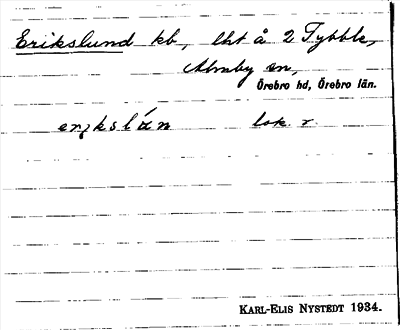 Erikslund kb, lht å 2 Tybble,
Almby sn,
Örebro hd, Örebro län.
lok. r.
KARL-ELIS NYSTEDT 1934.